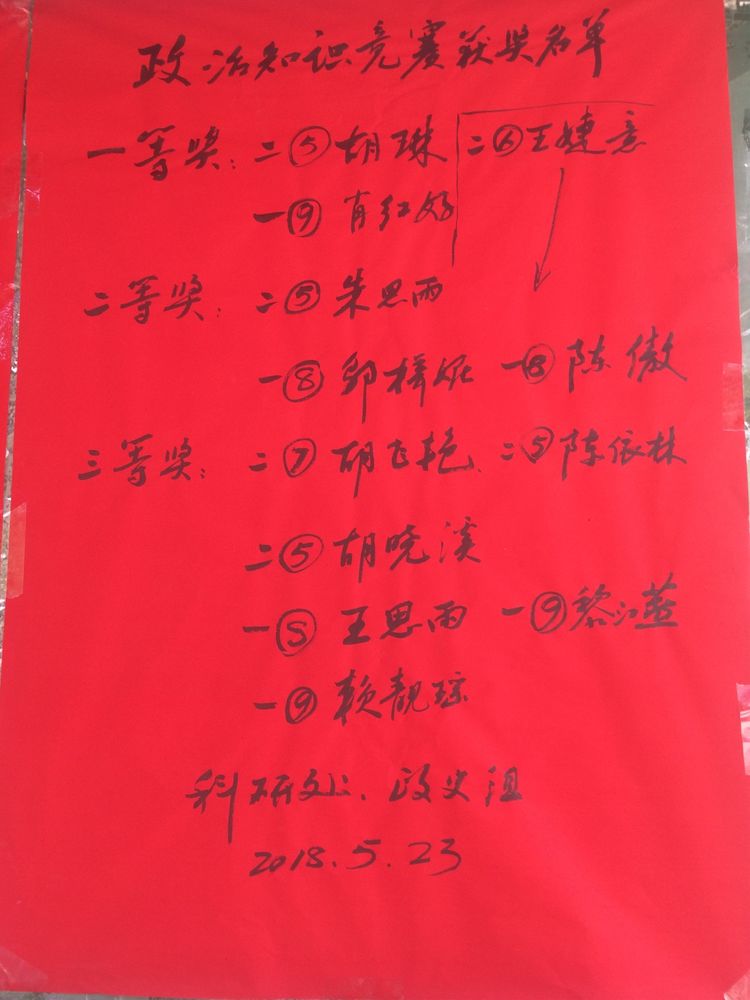 政治知识竞赛获奖名单
一等奖：二⑤胡琳 二⑥王婕意
一⑨肖红好
二等奖：二⑤朱思雨
一⑧邹梓妮 一⑧陈傲
三等奖：二⑦胡飞艳、二⑤陈依林
二⑤胡晓溪
一⑤王思雨 一⑨黎江燕
一⑨赖靓琮
科研处、政史组
2018.5.23